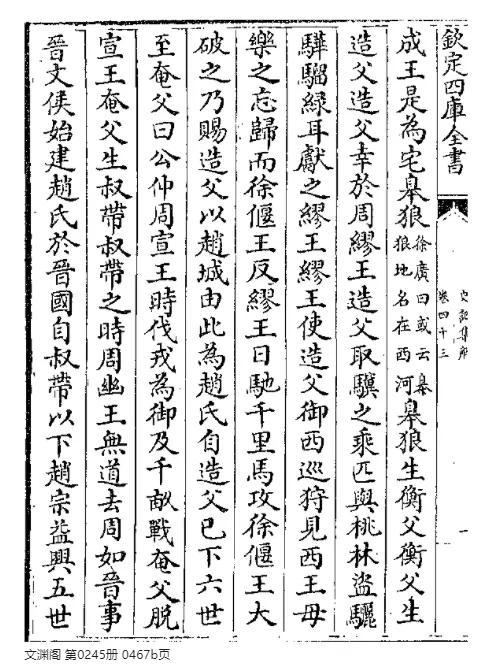 欽定四庫全書
史記集解
卷四十三
一
成王是為宅臯狼徐廣曰或云臯狼地名在西河臯狼生衡父衡父生
造父造父幸於周繆王造父取驥之乘匹與桃林盜驪
驊騮綠耳獻之繆王繆王使造父御西廵狩見西王母
樂之忘歸而徐偃王反繆王日馳千里馬攻徐偃王大
破之乃賜造父以趙城由此為趙氏自造父已下六世
至奄父曰公仲周宣王時伐戎為御及千畝戰奄父脫
宣王奄父生叔帶叔帶之時周幽王無道去周如晉事
晉文侯始建趙氏於晉國自叔帶以下趙宗益興五世
文渊阁 第0245册 0467b页